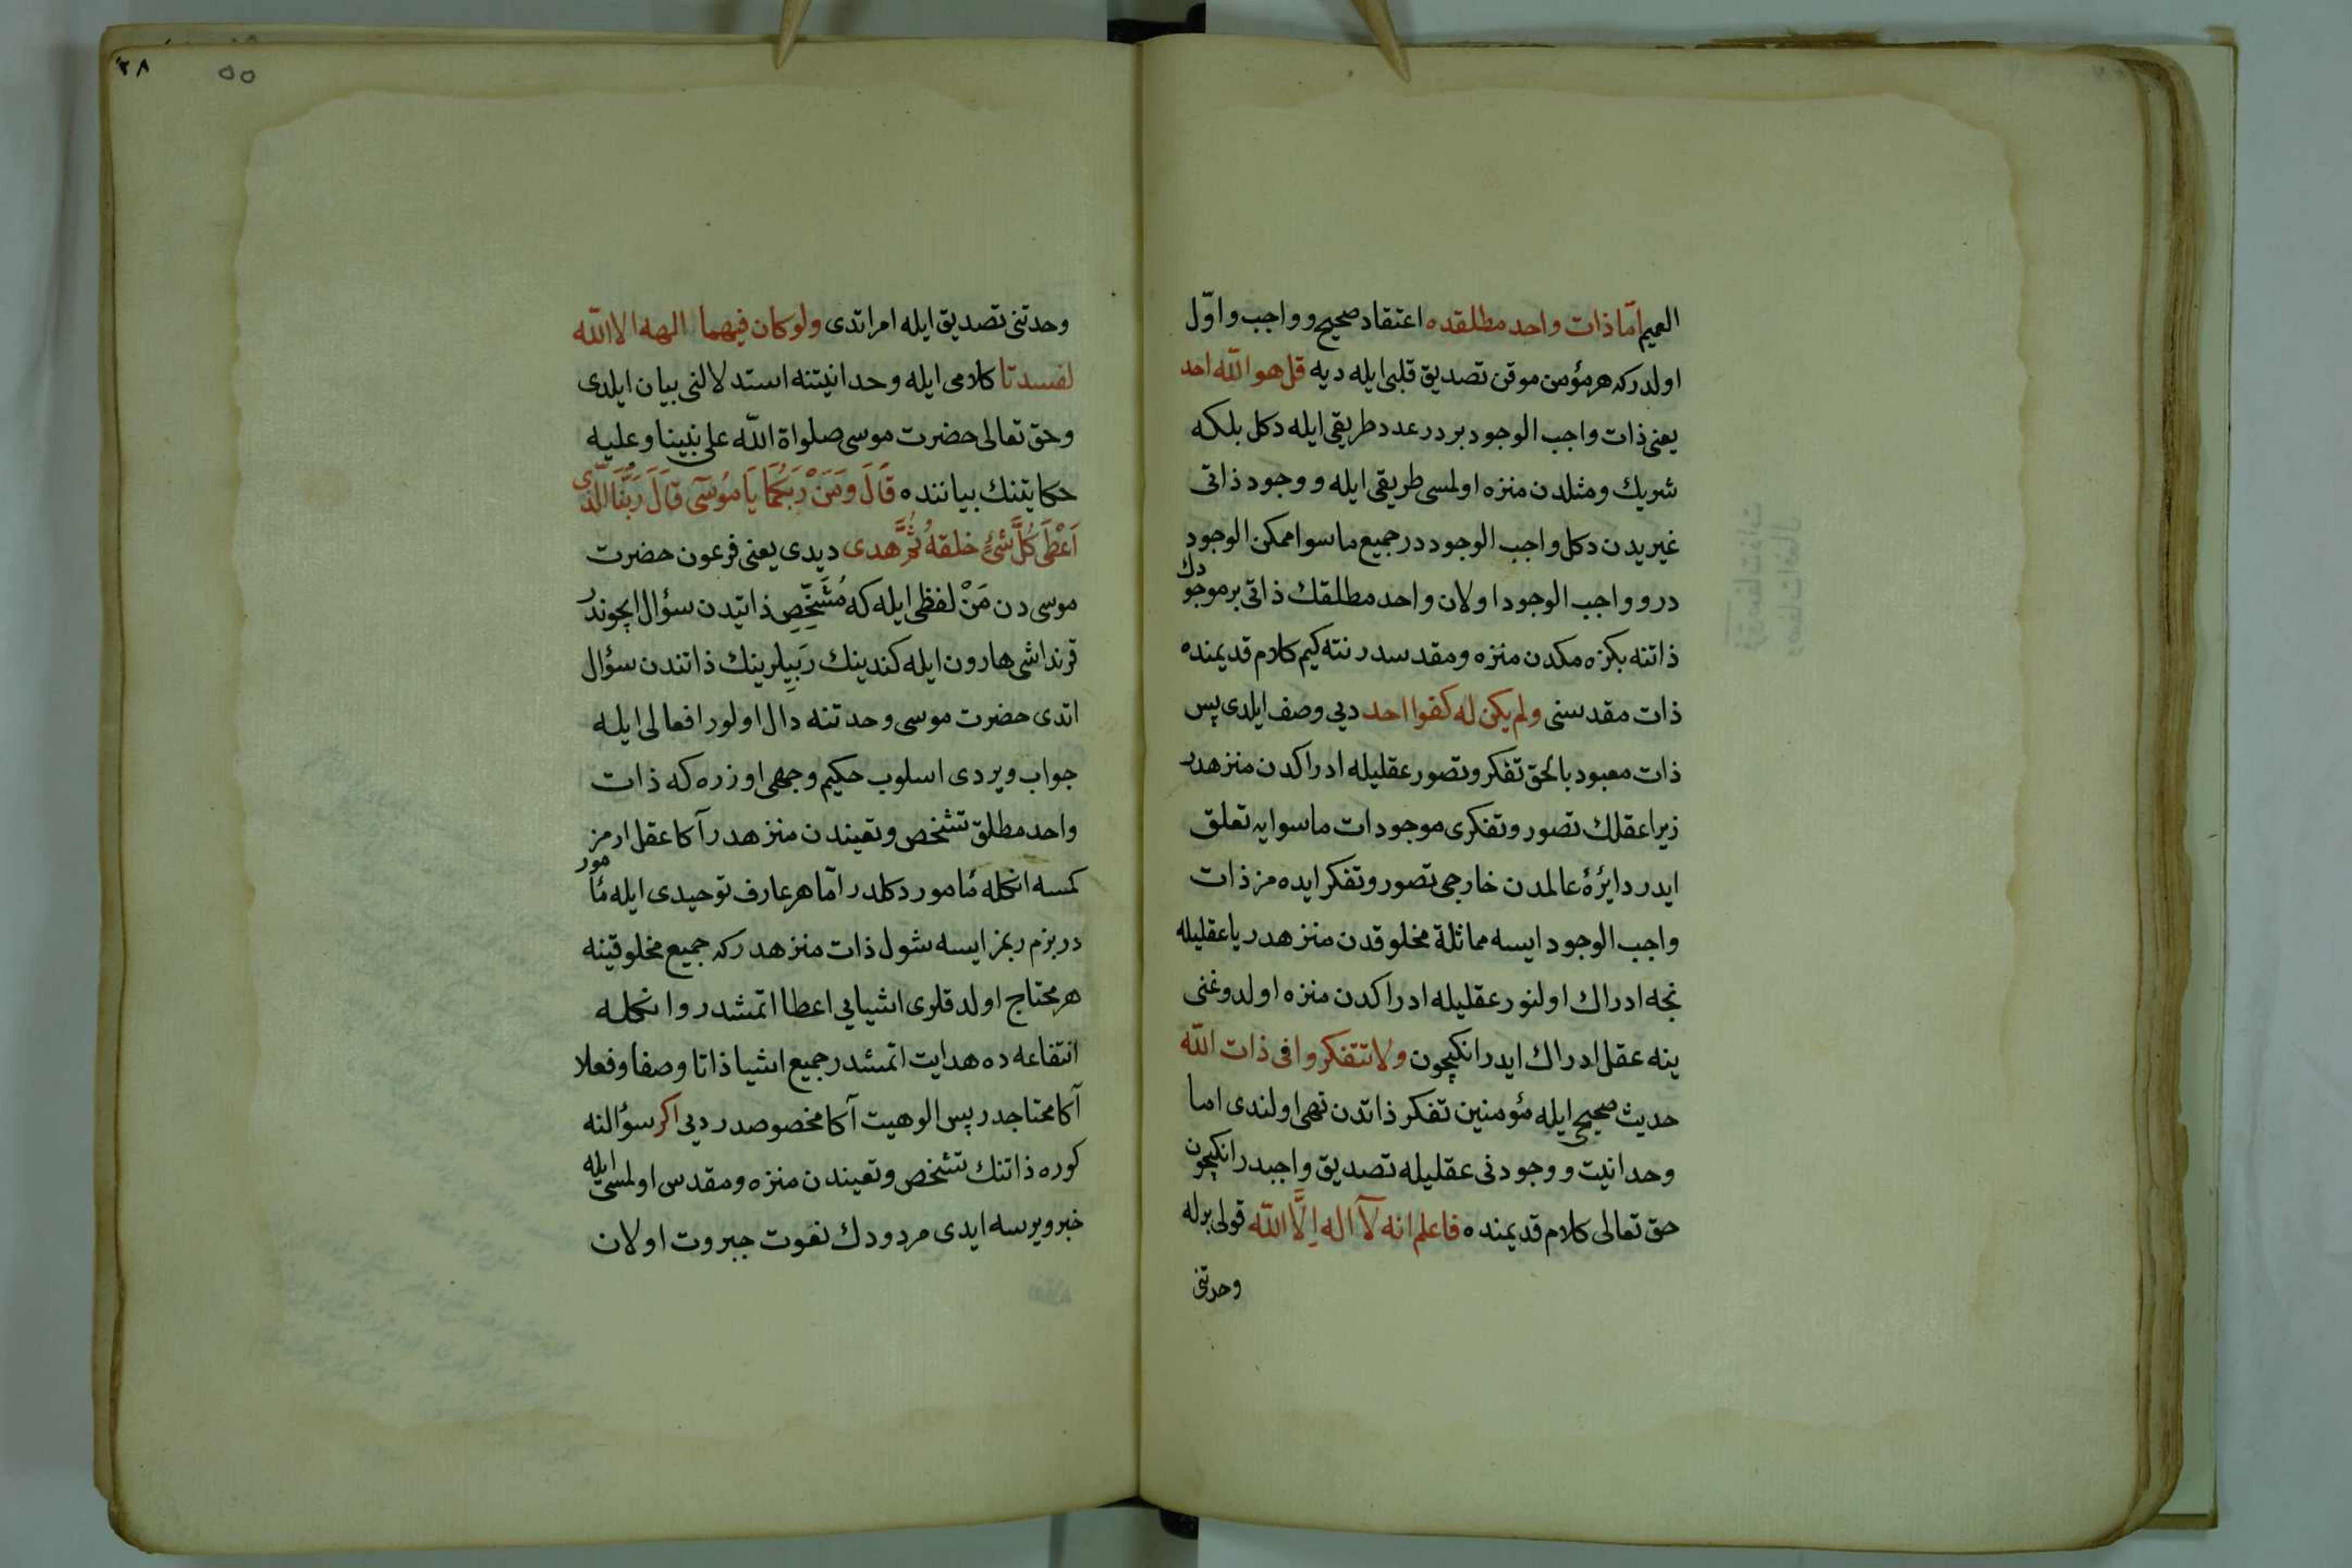 العميم امّا ذات واحد مطلقده اعتقاد صحيح و واجب و اوّل
اولدركه هر مؤمن موقن تصديق قلبى ايله ديه قل هو اللّه احد
يعنى ذات واجب الوجود بردر عدد طريقى ايله دكل بلكه
شريك ومثلدن منزه اولمسى طريقى ايله و وجود ذاتى
غيريدن دكل واجب الوجوددر جميع ماسوا ممكن الوجود
در و واجب الوجود اولان واحد مطلقك ذاتى بر موجودك
ذاتنه بكزه مكدن منزه ومقدسدر نته كيم كلام قديمنده
ذات مقدسنى ولم يكن له كفوا احد ديى وصف ايلدى پس
ذات معبود بالحق تفكر وتصور عقليله ادراكدن منزهدر
زيرا عقلك تصور وتفكرى موجودات ماسوايه تعلق
ايدر دايرۀ عالمدن خارجى تصور وتفكر ايده مز ذات
واجب الوجود ايسه مماثلة مخلوقدن منزهدر يا عقليله
نجه ادراك اولنور عقليله ادراكدن منزه اولدوغنى
ينه عقل ادراك ايدر انكيچون ولا تتفكروا فى ذات اللّه
حديث صحيحى ايله مؤمنين تفكر ذاتدن نهى اولندى اما
وحدانيت و وجودنى عقليله تصديق واجبدر انكيچون
حق تعالى كلام قديمنده فاعلم انه لآ اله اِلَّا اللّه قولى برله
وحدتنى
٣٨
٥٥
وحدتنى تصديق ايله امر اتدى ولو كان فيهما الهه الا اللّه
لفسدتا كلامى ايله وحدانيتنه استدلالنى بيان ايلدى
وحق تعالى حضرت موسى صلواة اللّه على نبينا وعليه
حكايتنك بياننده قَالَ وَمَنْ رَبُّكُمَا يَا مُوسَى قَالَ رَبُّنَا الَّذِى
اَعْطَى كُلَّ شَئٍ خلقهُ ثُمَّ هدى ديدى يعنى فرعون حضرت
موسى دن مَنْ لفظى ايله كه مُشَخِّصِ ذاتيدن سؤال ايچوندر
قرنداشى هارون ايله كندينك رَبِيلرينك ذاتندن سؤال
اتدى حضرت موسى وحدتنه دال اولور افعالى ايله
جواب ويردى اسلوب حكيم وجهى اوزره كه ذات
واحد مطلق تشخص وتعيندن منزهدر آكا عقل ارمز
كمسه انكله مٔامور دكلدر امّا هر عارف توحيدى ايله مٔامور
در بزم ربمز ايسه شول ذات منزهدركه جميع مخلوقينه
هر محتاج اولدقلرى اشيايى اعطا اتمشدر وانكله
انتفاعه ده هدايت اتمشدر جميع اشيا ذاتا وصفا وفعلا
آكا محتاجدر پس الوهيت آكا مخصوصدر ديى اكر سؤالنه
كوره ذاتنك تشخص وتعيندن منزه ومقدس اولمسى ايله
خبر ويرسه ايدى مردودك نعوت جبروت اولان